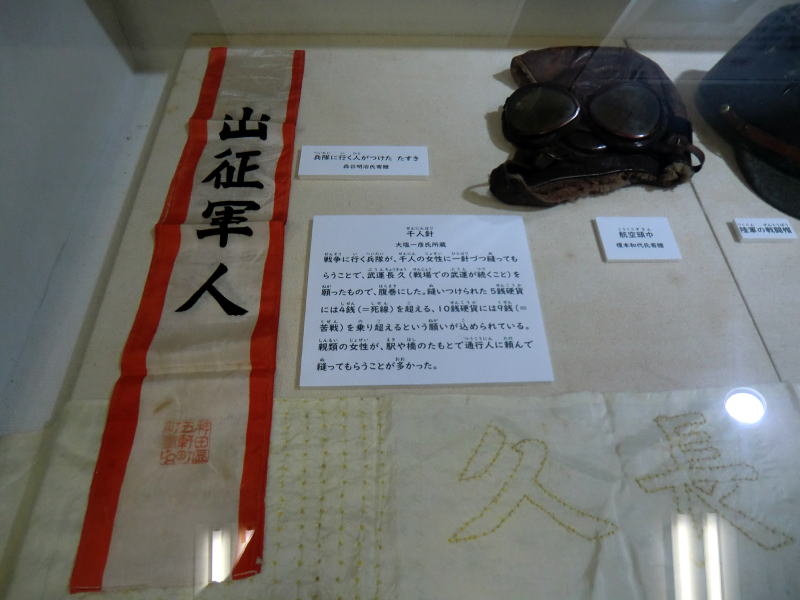 出征軍人
神田區
五軒町
兵隊に行く人がつけた たすき
森谷明治氏寄贈
千人針
大塩一彦氏所蔵
戦争に行く兵隊が、千人の女性に一針づつ縫っても
らうことで、武運長久(戦場での武運が続くこと)を
願ったもので、腹巻にした。縫いつけられた5銭硬貨
には4銭(=死線)を超える、10銭硬貨には9銭(=
苦戦)を乗り超えるという願いが込められている。
親類の女性が、駅や橋のたもとで通行人に頼んで
縫ってもらうことが多かった。
航空頭巾
榎本和代氏寄贈
陸軍の戦闘帽
長久